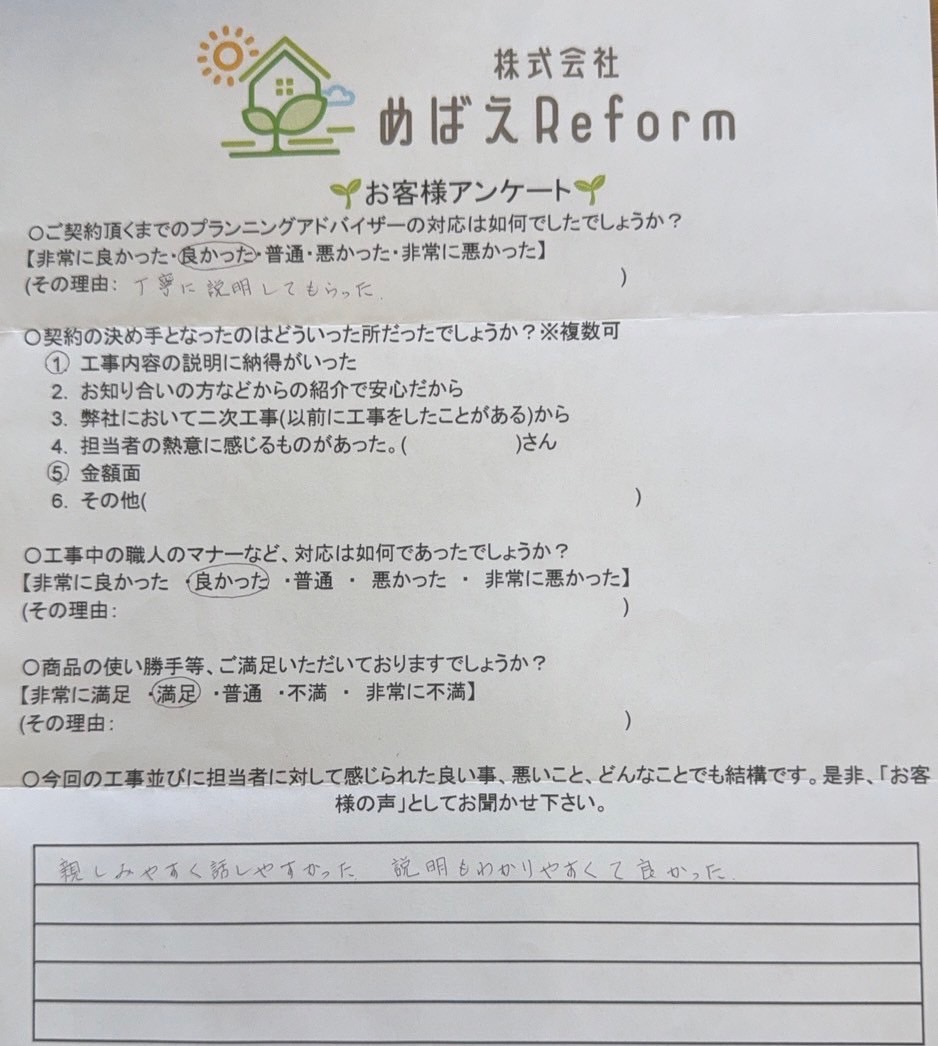 株式会社
めばえReform
お客様アンケート
○ご契約頂くまでのプランニングアドバイザーの対応は如何でしたでしょうか？
【非常に良かった・良かった・普通・悪かった・非常に悪かった】
(その理由： 丁寧に説明してもらった. )
○契約の決め手となったのはどういった所だったでしょうか？※複数可
① 工事内容の説明に納得がいった
2. お知り合いの方などからの紹介で安心だから
3. 弊社において二次工事(以前に工事をしたことがある)から
4. 担当者の熱意に感じるものがあった。( )さん
⑤ 金額面
6. その他( )
○工事中の職人のマナーなど、対応は如何であったでしょうか？
【非常に良かった ・良かった ・普通 ・ 悪かった ・ 非常に悪かった】
(その理由： )
○商品の使い勝手等、ご満足いただいておりますでしょうか？
【非常に満足 ・満足 ・普通 ・不満 ・ 非常に不満】
(その理由： )
○今回の工事並びに担当者に対して感じられた良い事、悪いこと、どんなことでも結構です。是非、「お客
様の声」としてお聞かせ下さい。
親しみやすく話しやすかった. 説明もわかりやすくて良かった.